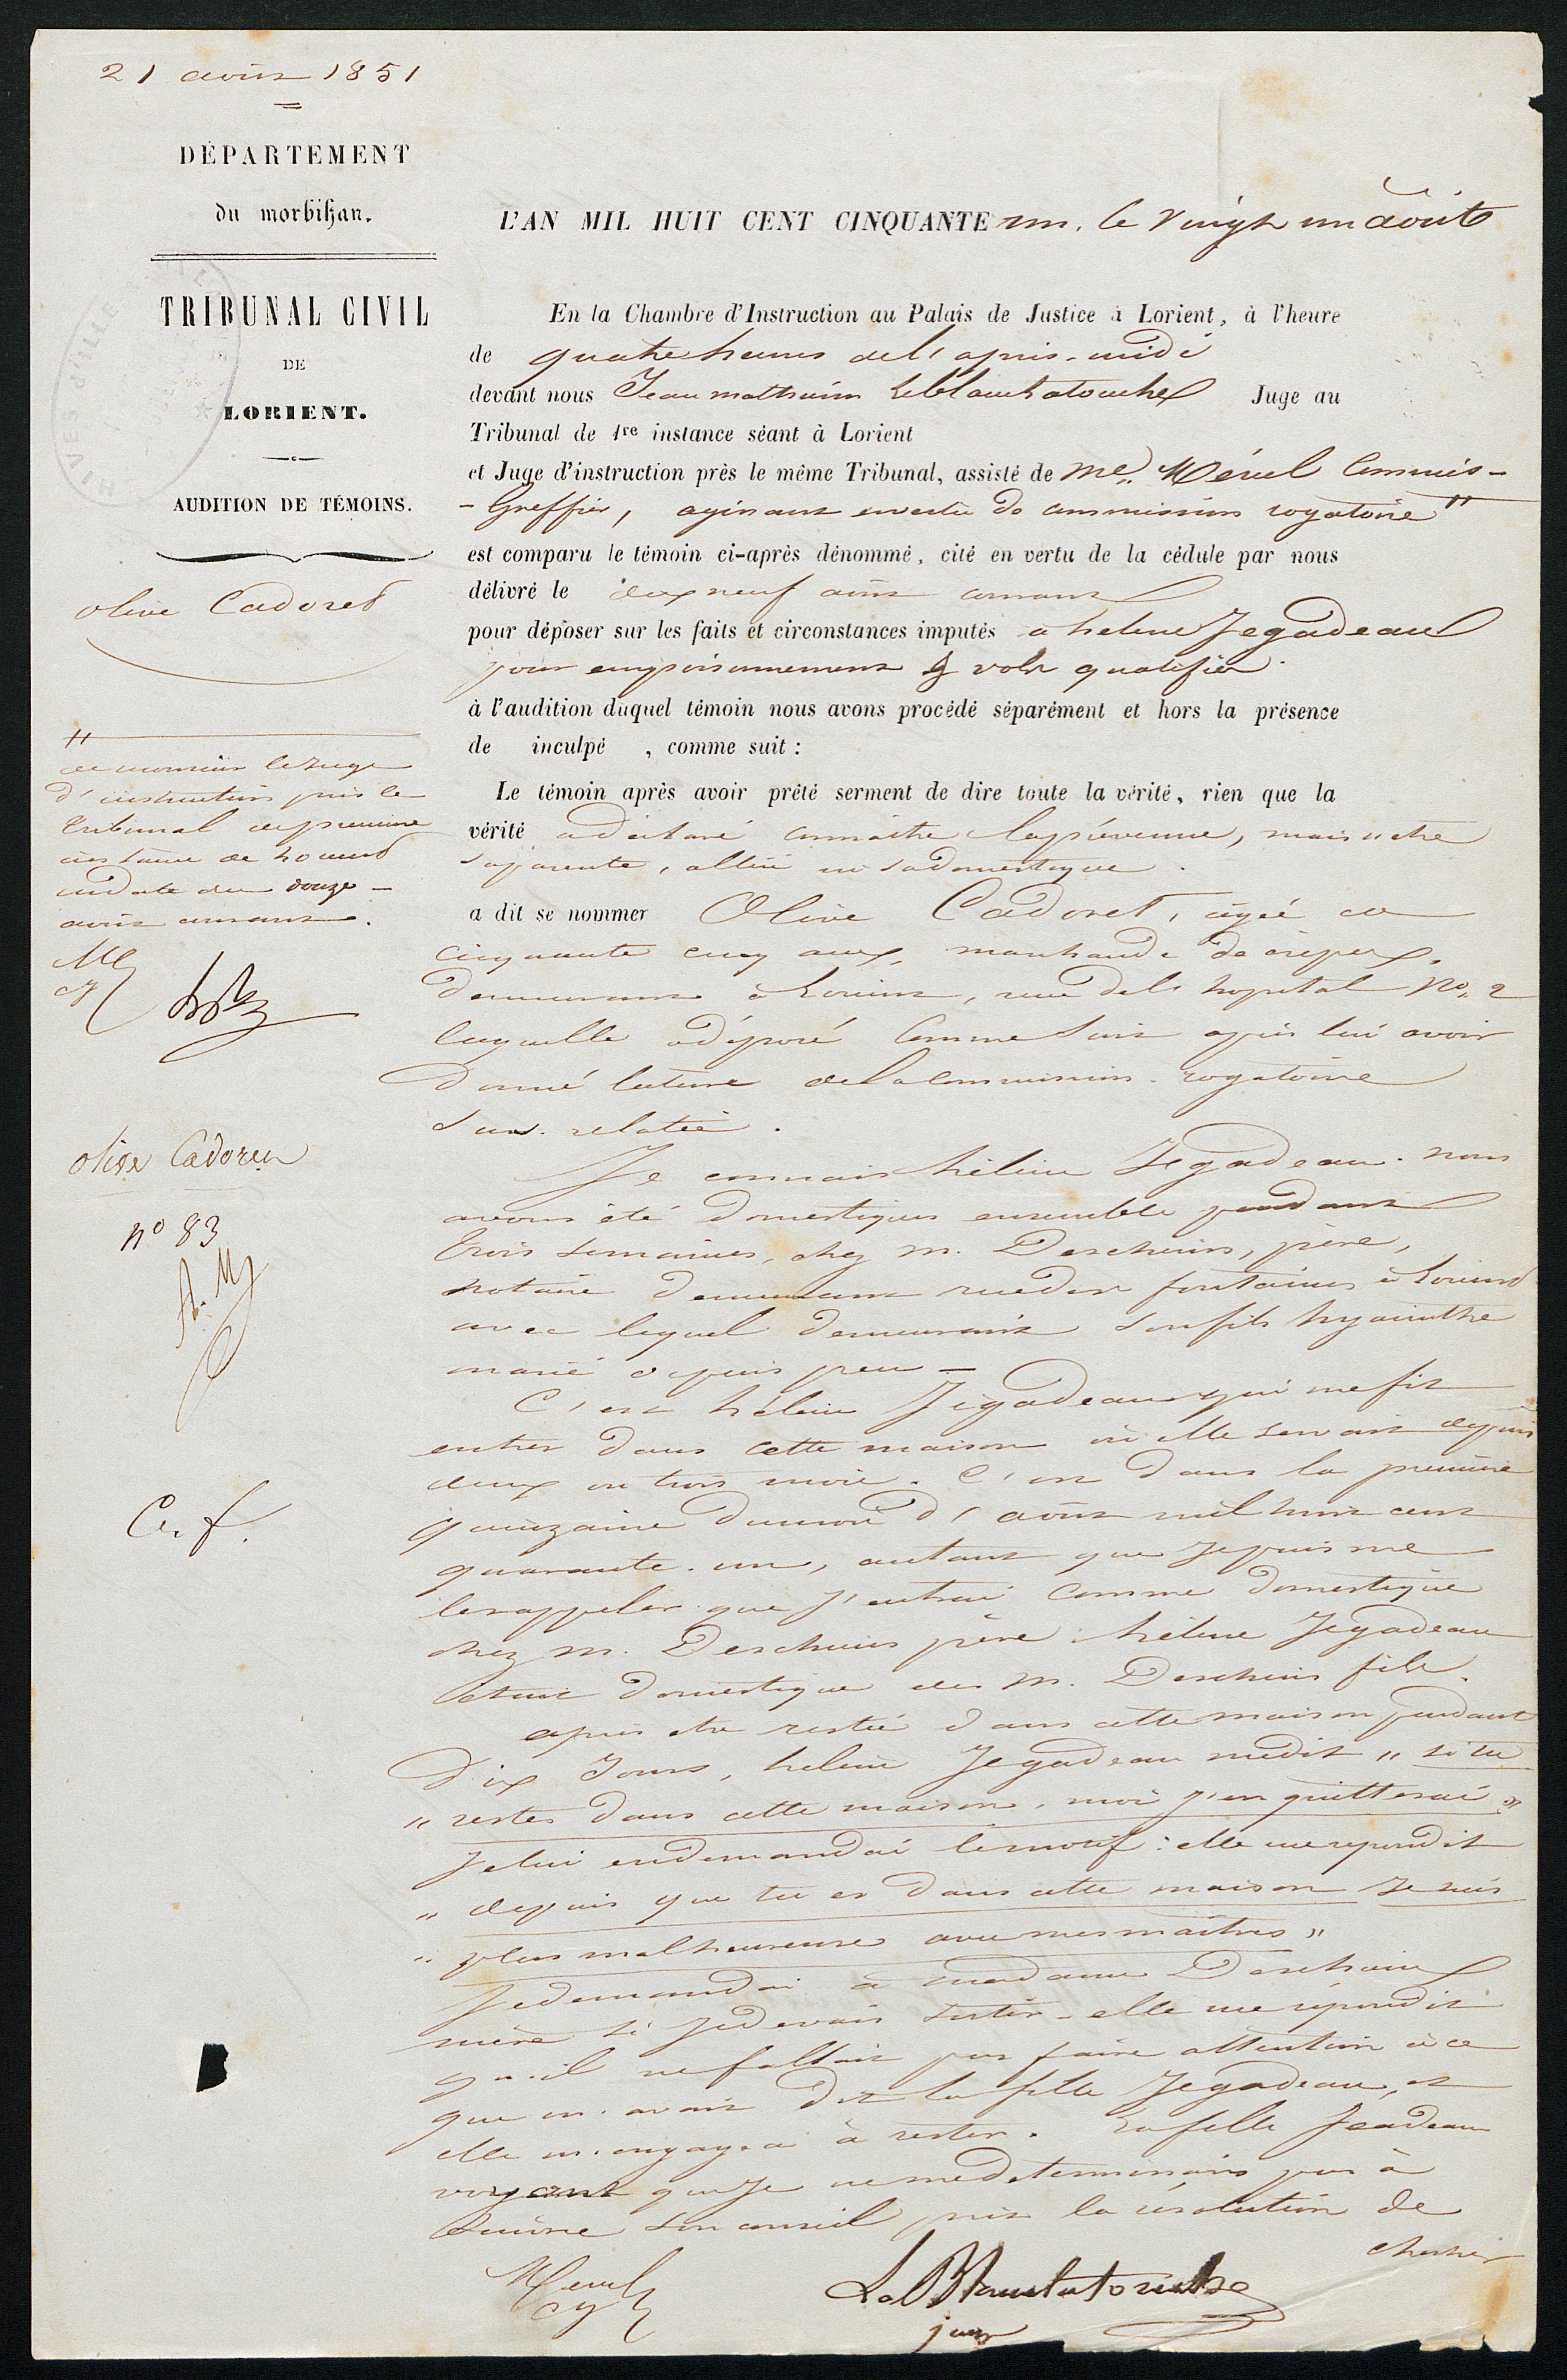 21 août 1851
DÉPARTEMENT
du morbihan.
TRIBUNAL CIVIL
DE
LORIENT.
AUDITION DE TÉMOINS.
olive Cadoret
"
de monsieur le Juge
d'instruction près le
tribunal de première
instance de Lorient
en date du douze
août courant.
olive Cadoret
nº 83
L'AN MIL HUIT CENT CINQUANTE un, le vingt un août
En la Chambre d'Instruction au Palais de Justice à Lorient, à l'heure
de quatre heures de l'après-midi
devant nous Jean mathurin Juge au
Tribunal de 1re instance séant à Lorient
et Juge d'instruction près le même Tribunal, assisté de Me. Commis-
- Greffier, agissant en vertu de commission rogatoire "
est comparu le témoin ci-après dénommé, cité en vertu de la cédule par nous
délivré le dix neuf août courant
pour déposer sur les faits et circonstances imputés à helene Jegadeau
pour empoisonnement & vols qualifiés.
à l'audition duquel témoin nous avons procédé séparément et hors la présence
de inculpé , comme suit :
Le témoin après avoir prêté serment de dire toute la vérité, rien que la
vérité a déclaré connaitre la prévenue, mais n'etre
sa parente, alliée ni sa domestique.
a dit se nommer Olive Cadoret, agée de
cinquante cinq ans, marchande de crêpes,
demeurant à Lorient, rue de l'hopital No. 2
laquelle a déposé comme suit après lui avoir
donné lecture de la commission rogatoire
sus-relatée.
Je connais hélène Jegadeau. nous
avons été domestiques ensemble pendant
trois semaines, chez m. Deschiens, père,
notaire demeurant rue des fontaines à Lorient
avec lequel demeurait son fils hyacinthe
marié depuis peu -
C'est hélène Jégadeau qui me fit
entrer dans cette maison où elle servait depuis
deux ou trois mois. C'est dans la première
quinzaine du mois d'août mil huit cent
quarante-un, autant que je puis me
le rappeler que j'entrai comme domestique
chez m. Deschiens père. hélène Jegadeau
était domestique de m. Deschiens fils.
après etre restée dans cette maison pendant
dix Jours, helène Jegadeau me dit " si tu
" restes dans cette maison, moi j'en quitterai "
je lui en demandai le motif : elle me repondit
" depuis que tu es dans cette maison je suis
" plus malheureuse avec mes maîtres "
Je demandai à madame Deschiens
mère si je devais sortir - elle me répondit
qu'il ne fallait pas faire attention à ce
que m'avait dit la fille Jegadeau, et
elle m'engagea à rester. La fille Jeadeau
voyant que Je ne me determinais pas à
suivre son conseil prit la résolution de
chercher